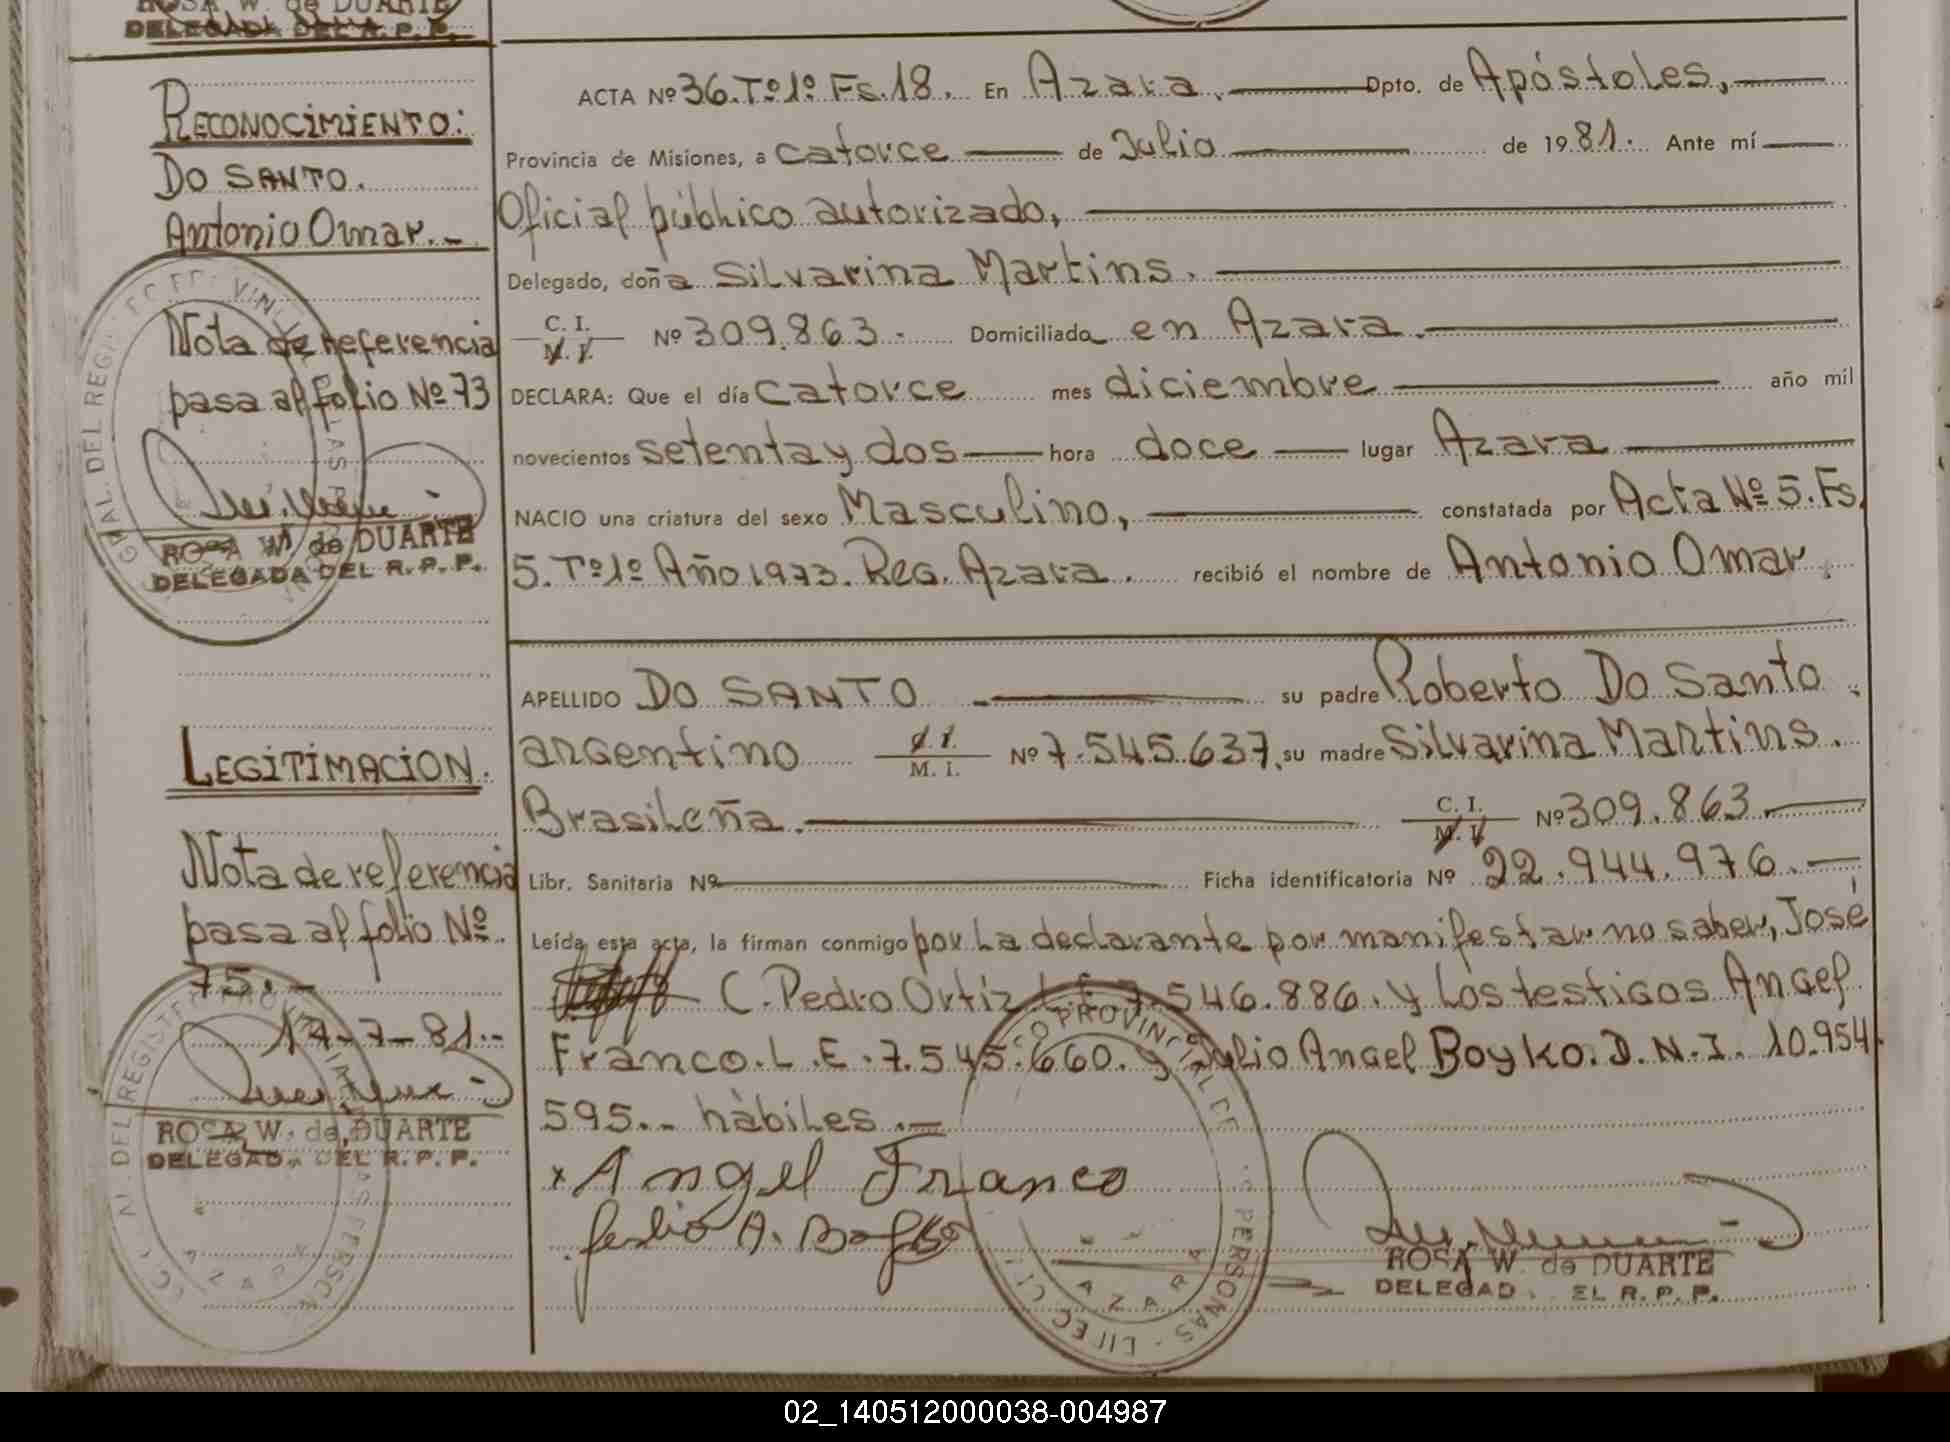 ROSA W. de DUARTE
DELEGADA DEL R. P. P.
RECONOCIMIENTO:
DO SANTO.
Antonio Omar.-
Nota de referencia
pasa al folio Nº 73
ROSA W. de DUARTE
DELEGADA DEL R. P. P.
LEGITIMACION.
Nota de referencia
pasa al folio Nº
75.-
14-7-81.-
ROSA W. de DUARTE
DELEGADA DEL R. P. P.
ACTA Nº 36. Tº 1º Fs. 18. En Azara. Dpto. de Apóstoles,
Provincia de Misiones, a catorce de Julio de 1981. Ante mí
Oficial público autorizado,
Delegado, doña Silvarina Martins.
C. I. M. I. Nº 309.863.- Domiciliado en Azara.
DECLARA: Que el día catorce mes diciembre año mil
novecientos setenta y dos hora doce lugar Azara
NACIO una criatura del sexo Masculino, constatada por Acta Nº 5. Fs.
5. Tº 1º Año 1973. Reg. Azara. recibió el nombre de Antonio Omar.
APELLIDO DO SANTO su padre Roberto Do Santo.
argentino C. I. M. I. Nº 7.545.637. su madre Silvarina Martins.
Brasileña. C. I. M. I. Nº 309.863
Libr. Sanitaria Nº Ficha identificatoria Nº 22.944.976.
Leída esta acta, la firman conmigo por la declarante por manifestar no saber, José
C. Pedro Ortiz L.E. 7.546.886. y los testigos Angel
Franco. L. E. 7.545.660. y Julio Angel Boyko. D. N. I. 10.954
595.- hàbiles.-
x Angel Franco
Julio A. Boyko
PROVINCIAL DE
PERSONAS
AZARA
ROSA W. de DUARTE
DELEGAD EL R. P. P.
02_140512000038-004987